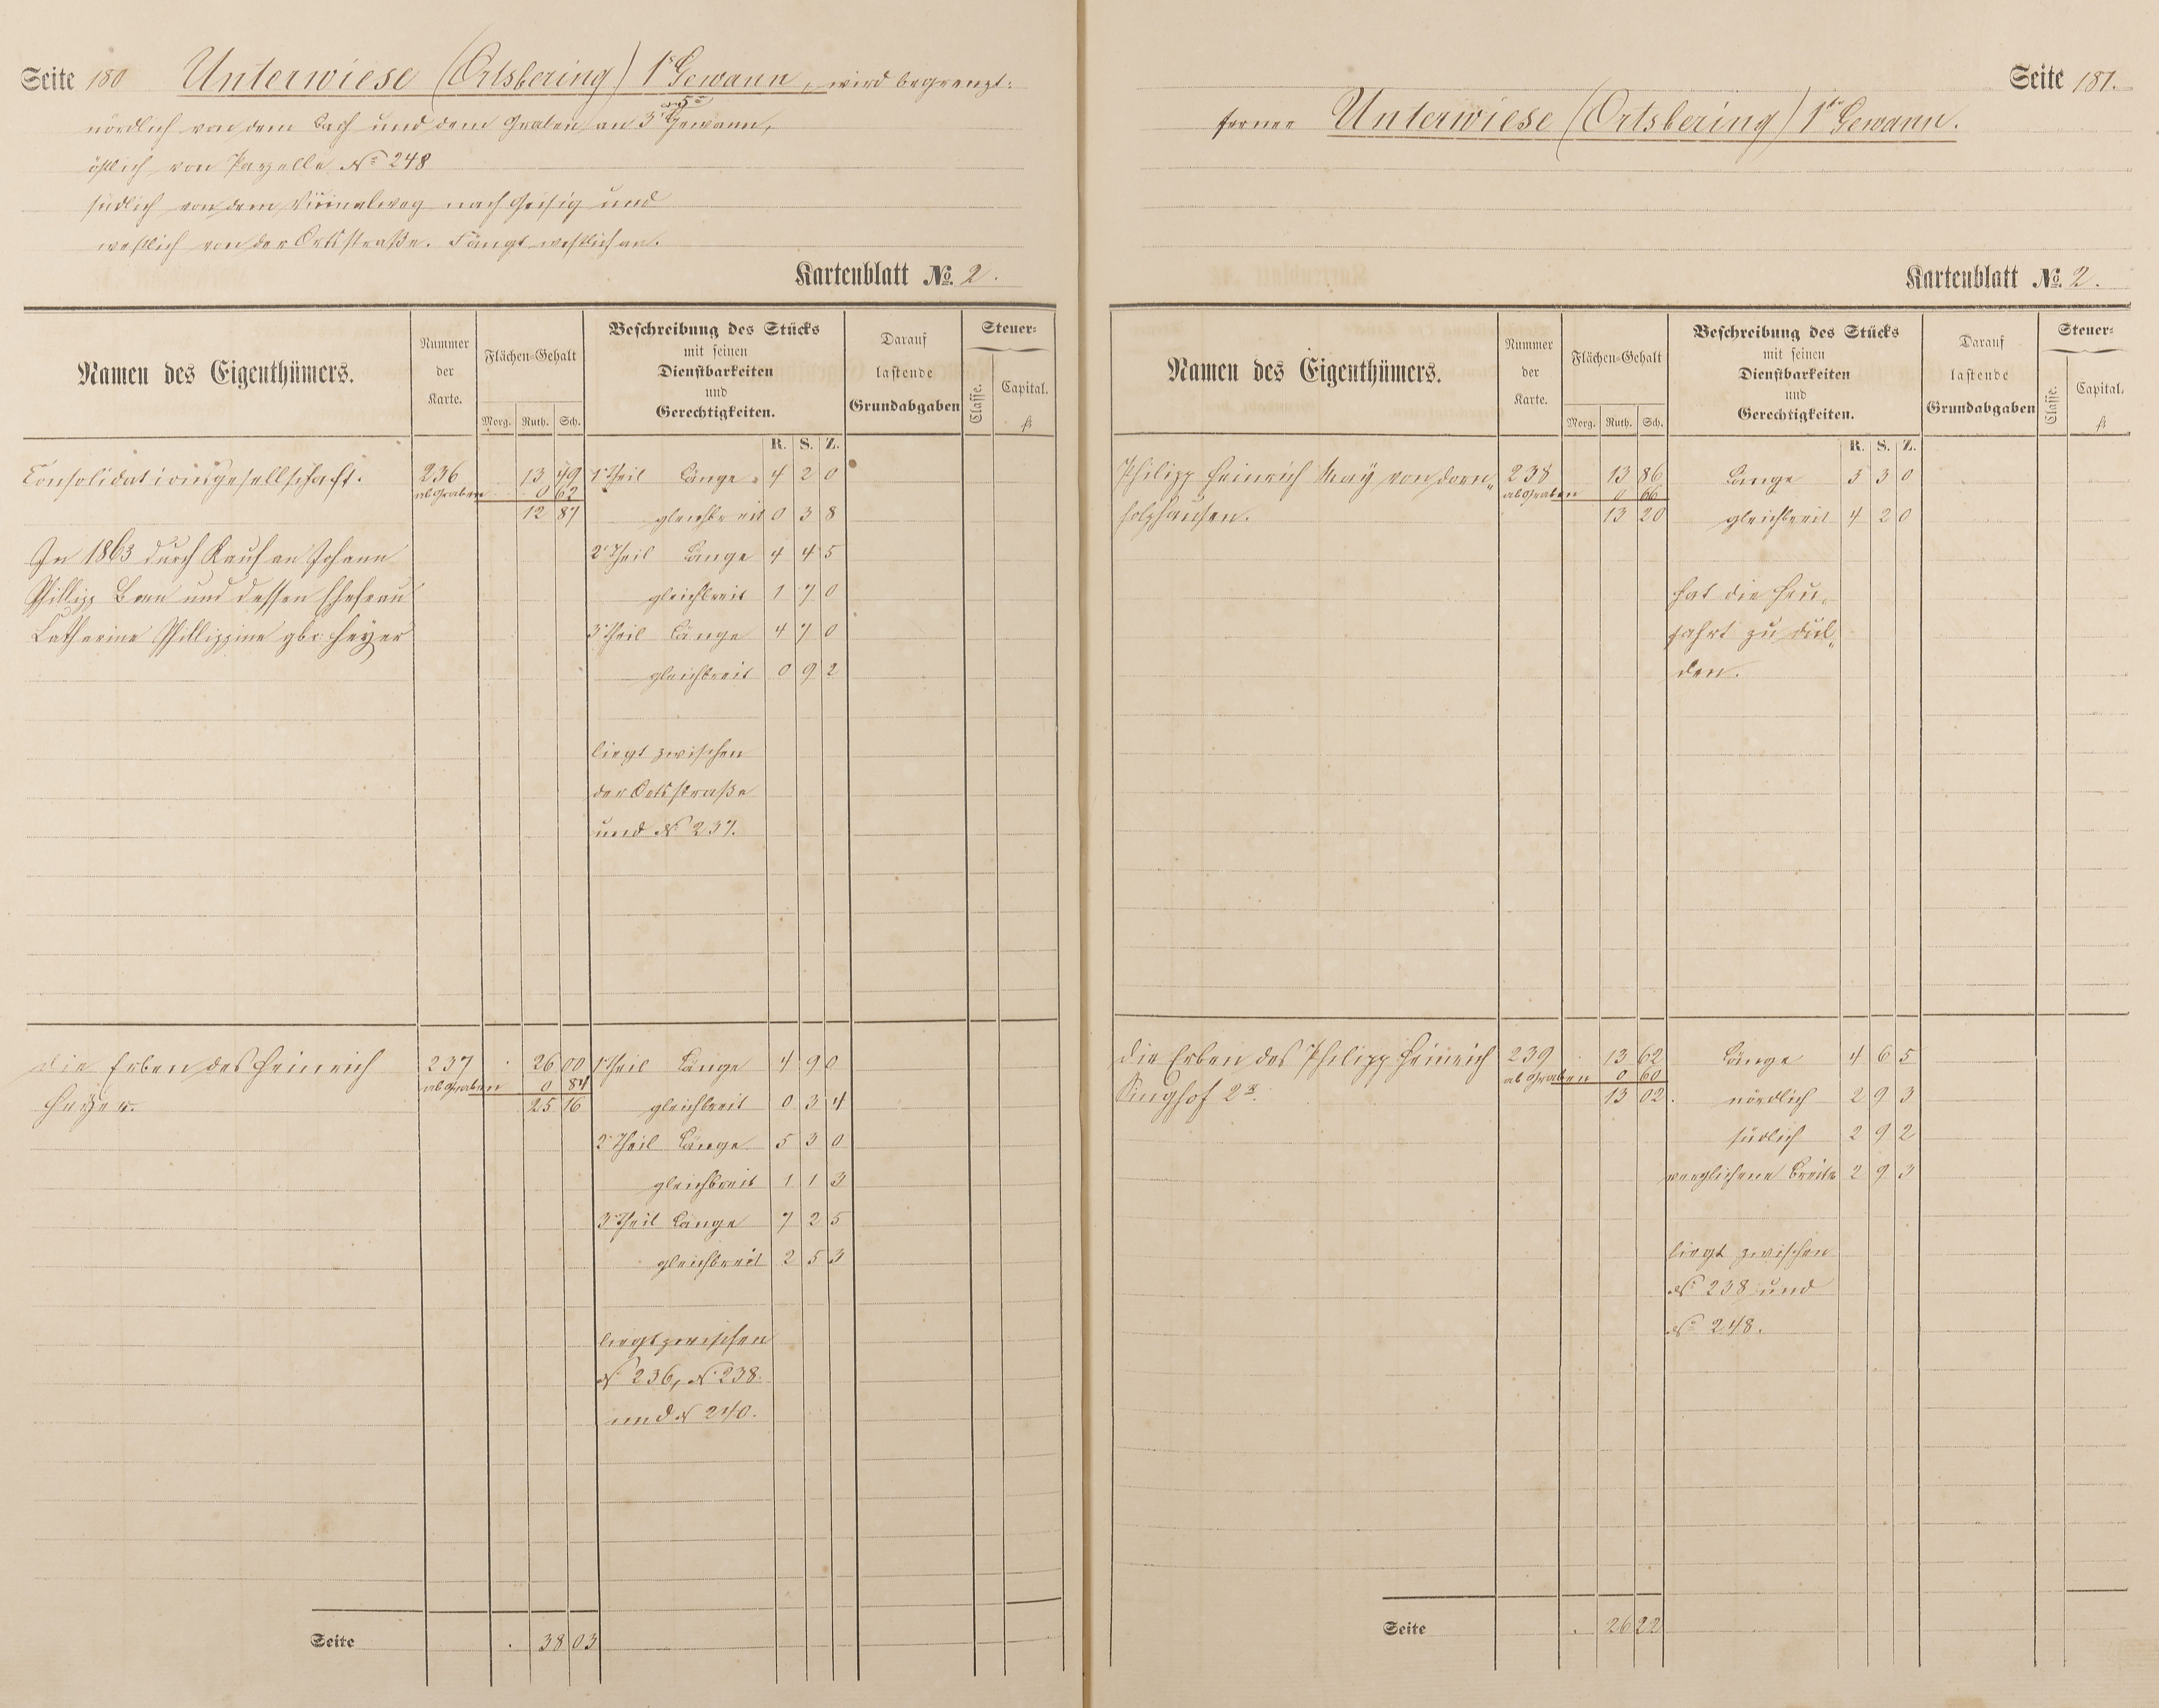 Seite 180 Unterwiese (Ortsbering) 1r Gewann, wird begrenzt:
nördlich von dem Bach und dem Graben an 3r Gewann,
östlich von Parzelle No 248
südlich von dem Vicinalweg nach Geisig und
westlich von der Ortsstraße. Fängt westlich an.
Kartenblatt No. 2.
Namen des Eigenthümers.
Nummer der Karte.
Flächen=Gehalt
Morg. Ruth. Sch.
Beschreibung des Stücks
mit seinen
Dienstbarkeiten
und
Gerechtigkeiten.
Darauf
lastende
Grundabgaben
Steuer=
Classe. Capital.
fl
R. S. Z.
Consolidationsgesellschaft. 236 13 49 1r Theil Länge 4 2 0
ab Graben 0 62
12 87 gleichbreit 0 3 8
In 1863 durch Kauf an Johann 2r Theil Länge 4 4 5
Phillipp und dessen Ehefrau gleichbreit 1 7 0
Catharine Phillippine gbr. Heyer 3r Theil Länge 4 7 0
gleichbreit 0 9 2
liegt zwischen
der Ortsstraße
und No 237.
Die Erben des Heinrich 237 . 26 00 1r Theil Länge 4 9 0
ab Graben 0 84
Heyer. 25 16 gleichbreit 0 3 4
2r Theil Länge 5 3 0
gleichbreit 1 1 3
3r Theil Länge 7 2 5
gleichbreit 2 5 3
liegt zwischen
No 236, No 238
und No 240.
Seite . 38 03
Seite 181.
ferner Unterwiese (Ortsbering) 1te Gewann.
Kartenblatt No. 2.
Namen des Eigenthümers.
Nummer der Karte.
Flächen=Gehalt
Morg. Ruth. Sch.
Beschreibung des Stücks
mit seinen
Dienstbarkeiten
und
Gerechtigkeiten.
Darauf
lastende
Grundabgaben
Steuer=
Classe. Capital.
fl
R. S. Z.
Philipp Heinrich May von Dorn„ 238 13 86 Länge 3 3 0
ab Graben 0 66
holzhausen. 13 20 gleichbreit 4 2 0
hat die Heu„
fahrt zu dul„
den.
Die Erben des Philipp Heinrich 239 . 13 62 Länge 4 6 5
ab Graben 0 60
Singhof 2r. 13 02. nördlich 2 9 3
südlich 2 9 2
verglichene Breite 2 9 3
liegt zwischen
No 238 und
No 248.
Seite . 26 22